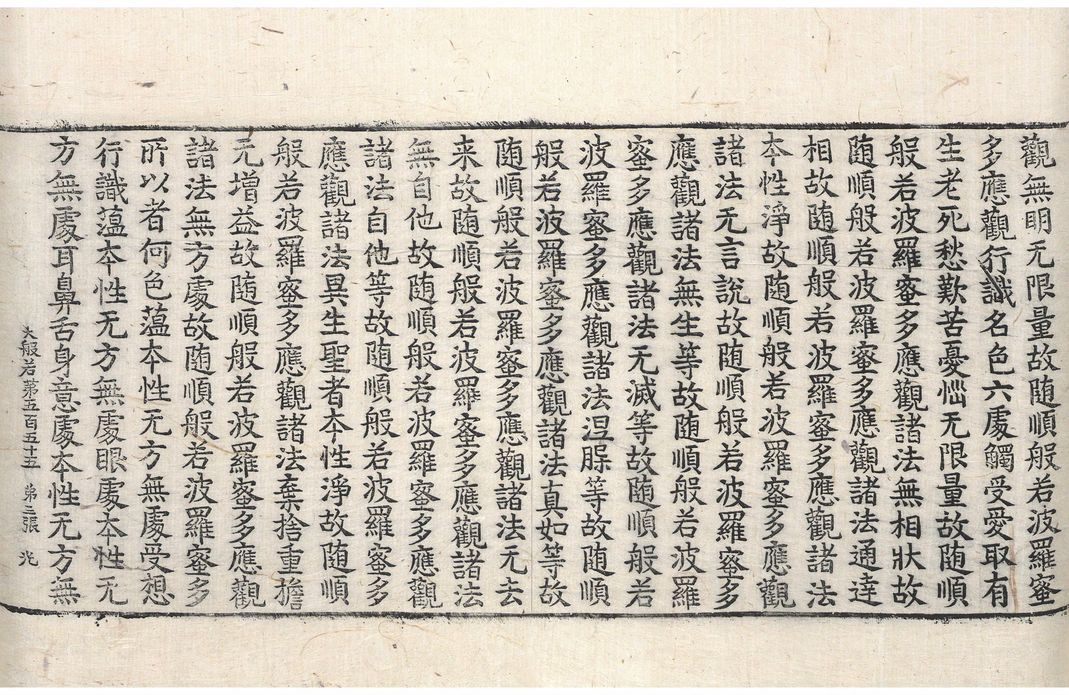 觀無明无限量故随順般若波羅蜜
多應觀行識名色六處觸受愛取有
生老死愁歎苦憂惱无限量故随順
般若波羅蜜多應觀諸法無相狀故
随順般若波羅蜜多應觀諸法通達
相故随順般若波羅蜜多應觀諸法
本性淨故随順般若波羅蜜多應觀
諸法无言說故随順般若波羅蜜多
應觀諸法無生等故随順般若波羅
蜜多應觀諸法无滅等故随順般若
波羅蜜多應觀諸法涅槃等故随順
般若波羅蜜多應觀諸法真如等故
随順般若波羅蜜多應觀諸法无去
来故随順般若波羅蜜多應觀諸法
無自他故随順般若波羅蜜多應觀
諸法自他等故随順般若波羅蜜多
應觀諸法異生聖者本性淨故随順
般若波羅蜜多應觀諸法棄捨重擔
无增益故随順般若波羅蜜多應觀
諸法無方處故随順般若波羅蜜多
所以者何色蘊本性无方無處受想
行識蘊本性无方無處眼處本性无
方無處耳鼻舌身意處本性无方無
大般若第五百五十五 第三張 光